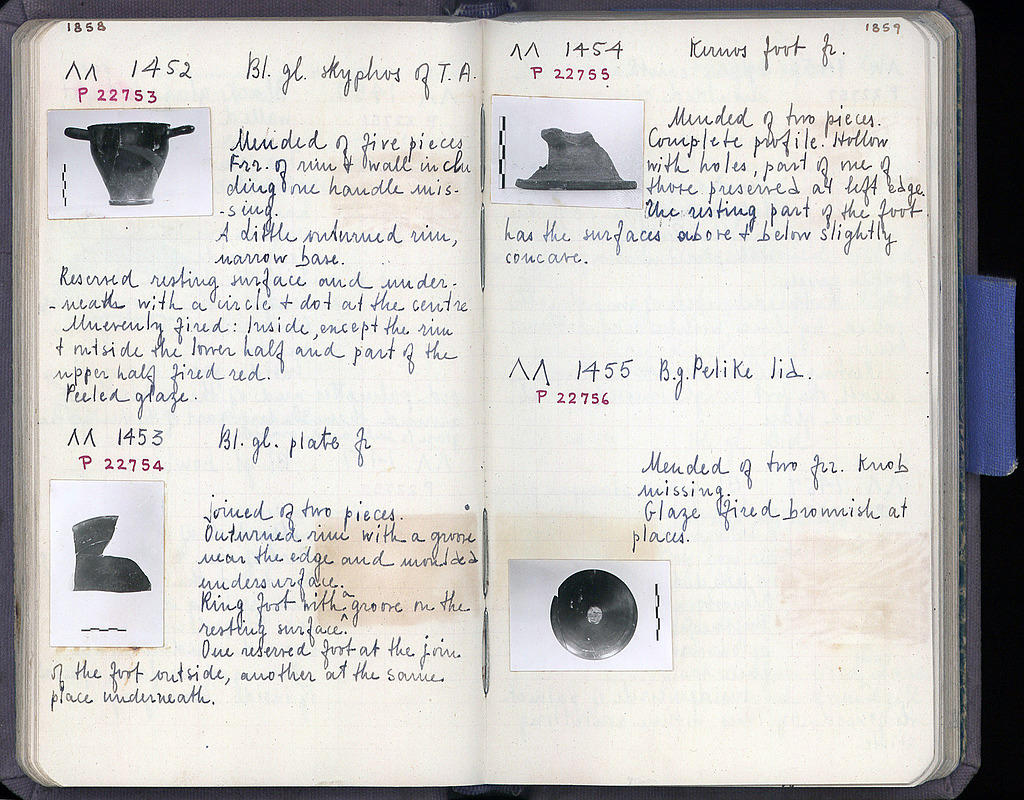 1858
ΛΛ 1452 Bl. gl. skyphos of T.A.
P 22753
Mended of five pieces
Frr. of rim & wall inclu
ding one handle mis-
-sing.
A little outurned rim,
narrow base.
Reserved resting surface and under-
-neath with a circle & dot at the centre
Unevenly fired: Inside, except the rim
& outside the lower half and part of the
upper half fired red.
Peeled glaze.
ΛΛ 1453 Bl. gl. plate fr
P 22754
Joined of two pieces.
Outurned rim with a groove
near the edge and moulded
undersurface.
Ring foot with a groove on the
resting surface.
One reserved foot at the join
of the foot outside, another at the same
place underneath.
1859
ΛΛ 1454 Kernos foot fr.
P 22755
Mended of two pieces.
Complete profile. Hollow
with holes, part of one of
those preserved at left edge.
The resting part of the foot
has the surfaces above & below slightly
concave.
ΛΛ 1455 B.g. Pelike lid.
P 22756
Mended of two frr. Knob
missing.
Glaze fired brownish at
places.